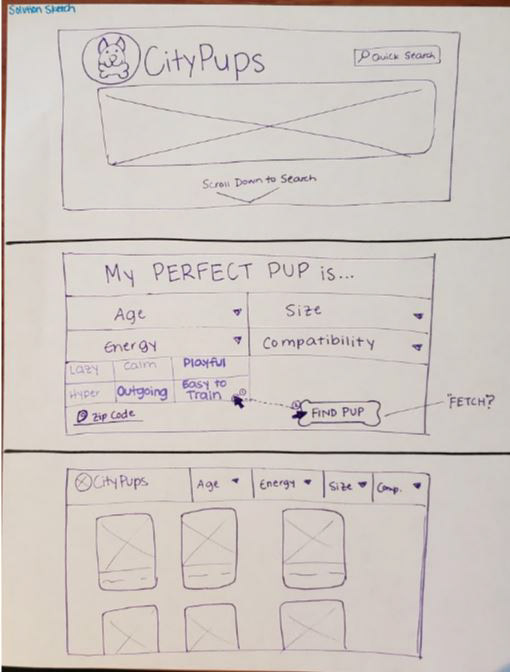 Solution Sketch
CityPups
Quick Search
Scroll Down to Search
My PERFECT PUP is...
Age
Size
Energy
Compatibility
Lazy Calm Playful
Hyper Outgoing Easy to
Train
Zip Code
FIND PUP
"FETCH"?
CityPups Age Energy Size Comp.